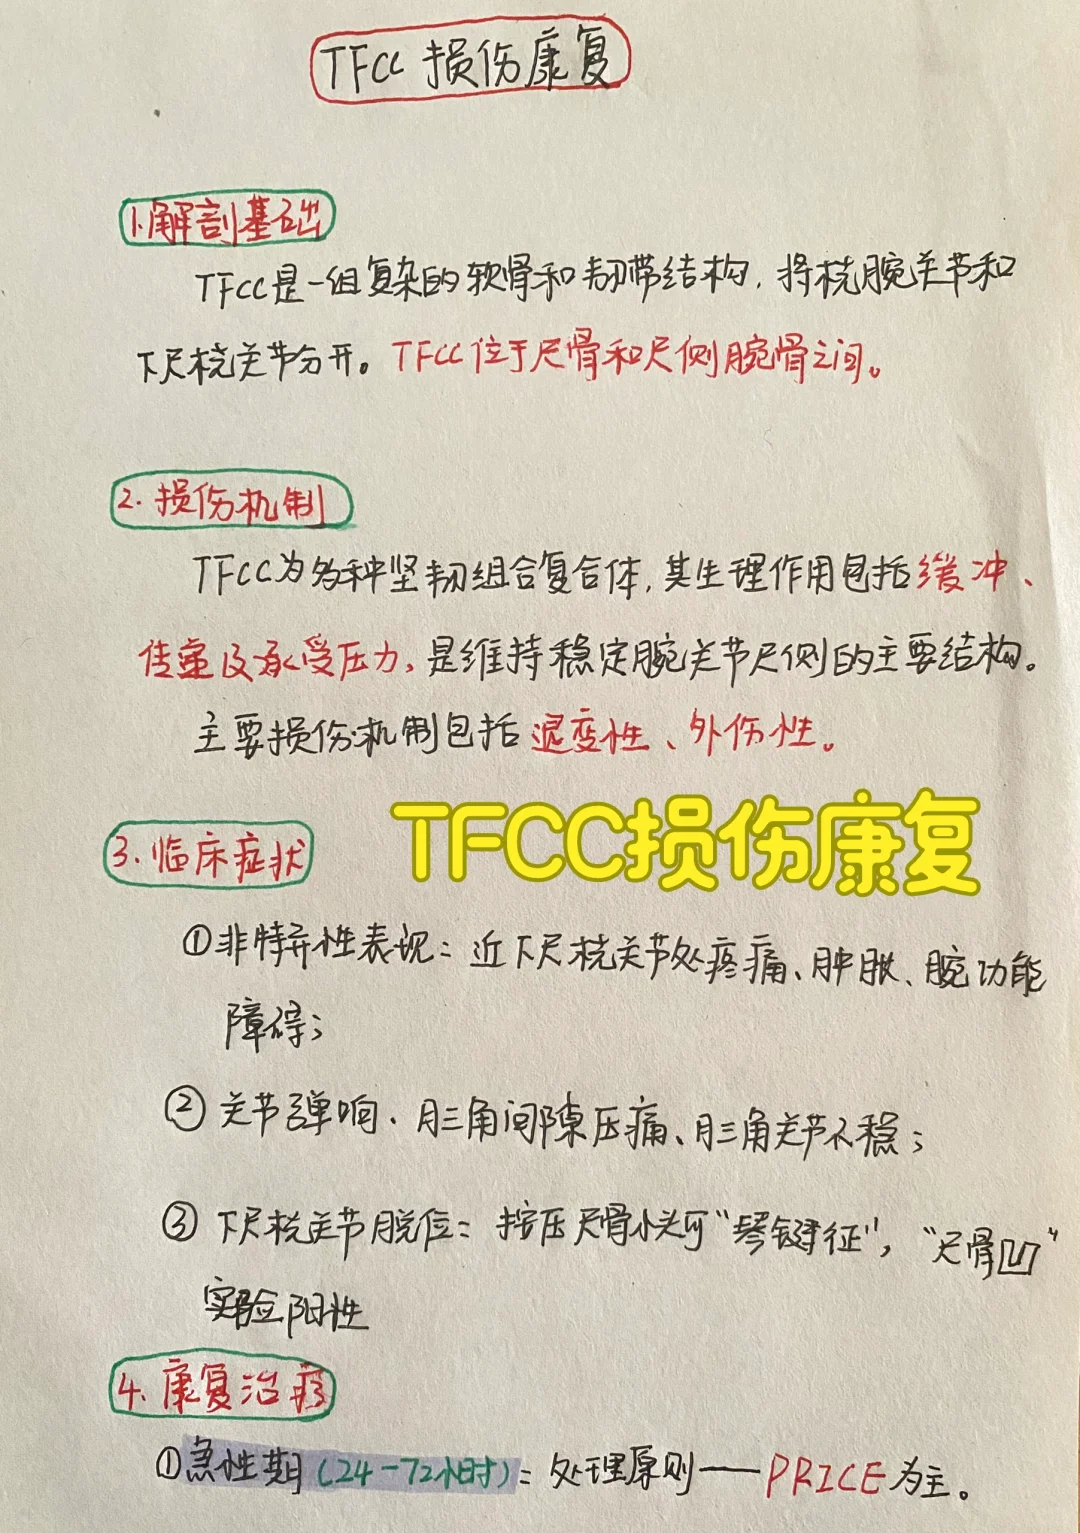 TFCC 损伤康复
1.解剖基础
TFCC是一组复杂的软骨和韧带结构,将桡腕关节和
下尺桡关节分开。TFCC位于尺骨和尺侧腕骨之间。
2.损伤机制
TFCC为多种坚韧组合复合体,其生理作用包括缓冲、
传重及承受压力,是维持稳定腕关节尺侧的主要结构。
主要损伤机制包括退变性、外伤性。
TFCC损伤康复
3.临床症状
①非特异性表现:近下尺桡关节处疼痛、肿胀、腕功能
障碍;
②关节弹响、月三角间隙压痛、月三角关节不稳;
③下尺桡关节脱位:按压尺骨小头可“琴键征”,“尺骨凹”
实验阳性
4.康复治疗
①急性期(24-72小时):处理原则——PRICE为主。